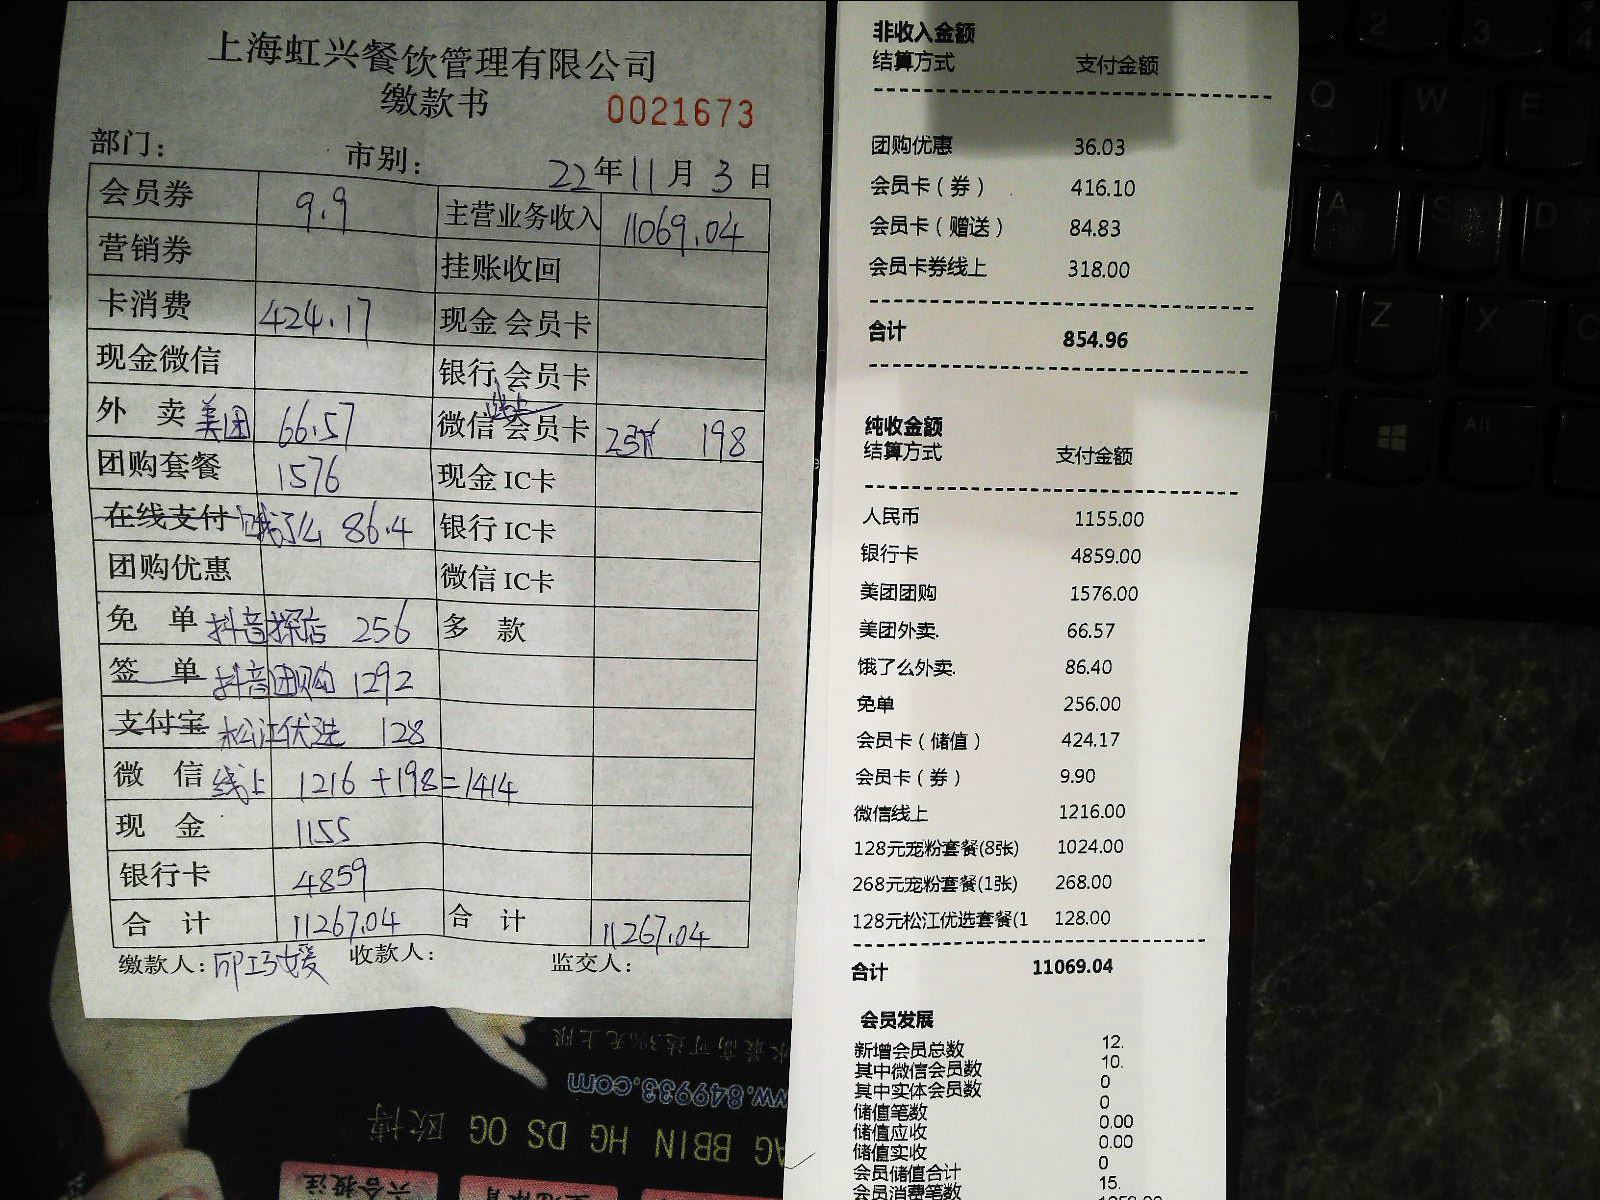 上海虹兴餐饮管理有限公司
缴款书 0021673
部门： 市别： 22年11月3日
会员券 9.9 主营业务收入 11069.04
营销券 挂账收回
卡消费 424.17 现金 会员卡
现金微信 银行 会员卡
外 卖 美团 66.57 微信 线上 会员卡 2张 198
团购套餐 1576 现金 IC卡
在线支付 饿了么 86.4 银行 IC卡
团购优惠 微信 IC卡
免 单 抖音探店 256 多 款
签 单 抖音团购 1292
支付宝 松江优选 128
微 信 线上 1216+198=1414
现 金 1155
银行卡 4859
合 计 11267.04 合 计 11267.04
缴款人： 收款人： 监交人：
非收入金额
结算方式 支付金额
团购优惠 36.03
会员卡（券） 416.10
会员卡（赠送） 84.83
会员卡券线上 318.00
合计 854.96
纯收金额
结算方式 支付金额
人民币 1155.00
银行卡 4859.00
美团团购 1576.00
美团外卖. 66.57
饿了么外卖. 86.40
免单 256.00
会员卡（储值） 424.17
会员卡（券） 9.90
微信线上 1216.00
128元宠粉套餐(8张) 1024.00
268元宠粉套餐(1张) 268.00
128元松江优选套餐(1 128.00
合计 11069.04
会员发展
新增会员总数 12.
其中微信会员数 10.
其中实体会员数 0
储值笔数 0
储值应收 0.00
储值实收 0.00
会员储值合计 0
会员消费笔数 15.
水最高可达3%无上限
ww.849933.com
AG BBIN HG DS OG 欧博
六合投注
Q W E
A S D
Z X C
Alt